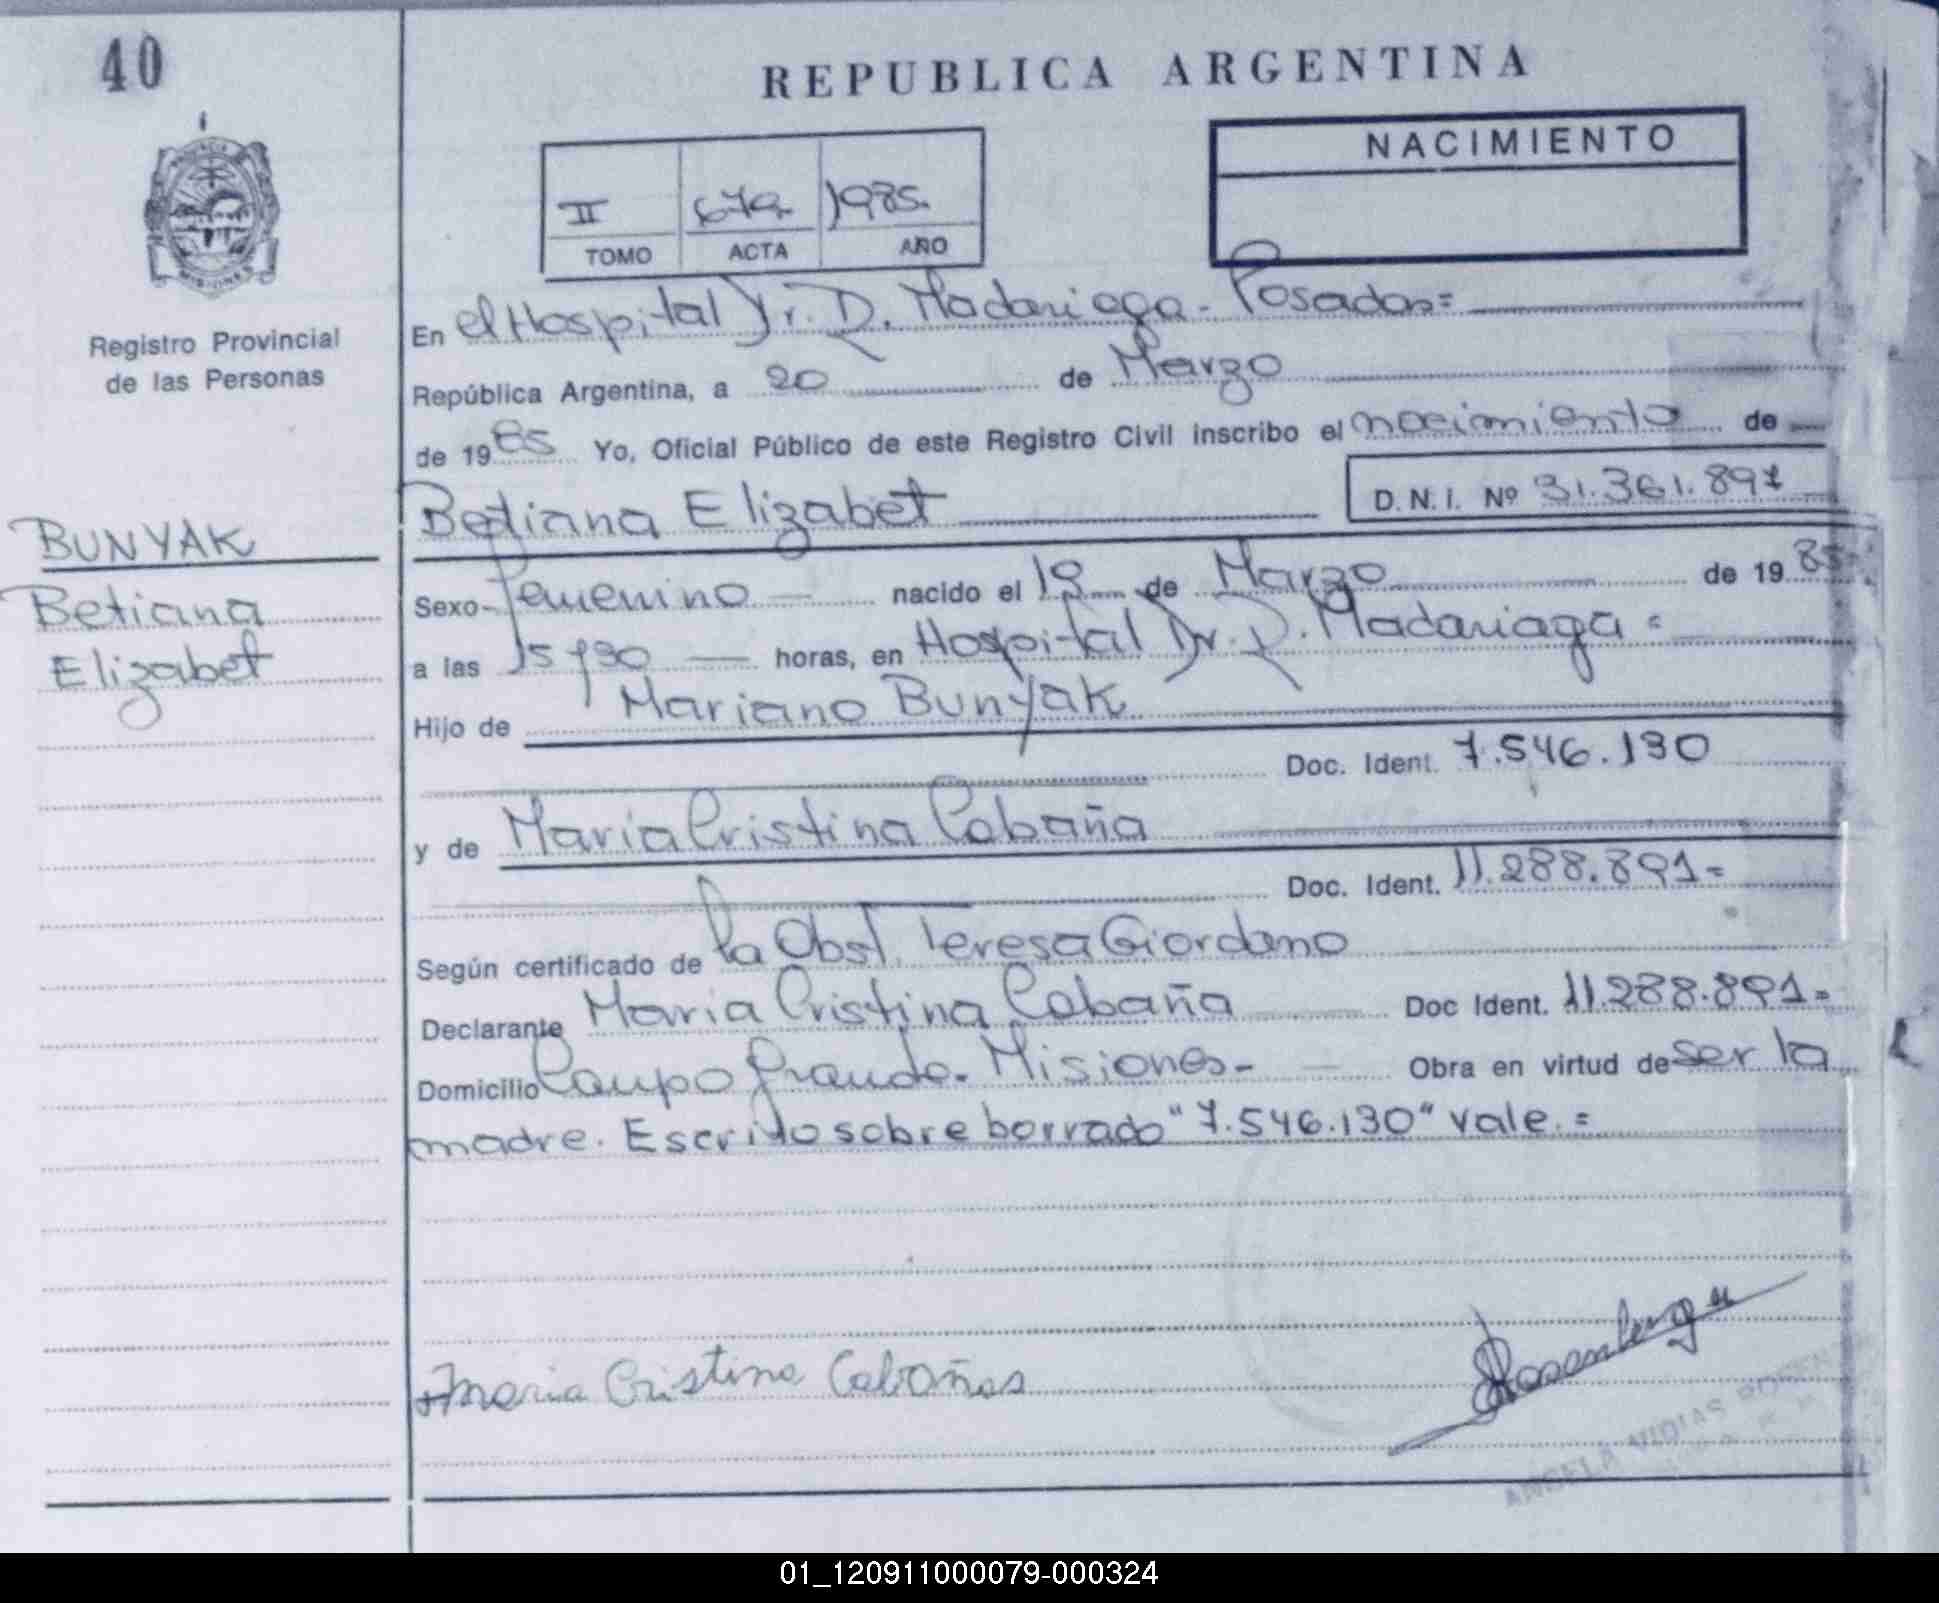 40
REPUBLICA ARGENTINA
NACIMIENTO
II 679 1985
TOMO ACTA AÑO
PROVINCIA
MISIONES
Registro Provincial
de las Personas
En el Hospital Dr. R. Madariaga - Posadas=
República Argentina, a 20 de Marzo
de 1985 Yo, Oficial Público de este Registro Civil inscribo el nacimiento de
Betiana Elizabet D.N.I. Nº 31.361.897
BUNYAK
Betiana
Elizabet
Sexo Femenino nacido el 19 de Marzo de 1985
a las 15,30 horas, en Hospital Dr. R. Madariaga =
Hijo de Mariano Bunyak
Doc. Ident. 7.546.130
y de María Cristina Cabaña
Doc. Ident. 11.288.891=
Según certificado de la Obst. Teresa Giordano
Declarante María Cristina Cabaña Doc Ident. 11.288.891=
Domicilio Campo Grande. Misiones- Obra en virtud de ser la
madre. Escrito sobre borrado "7.546.130" vale. =
Maria Cristina Cabañas
ANGELA
01_120911000079-000324